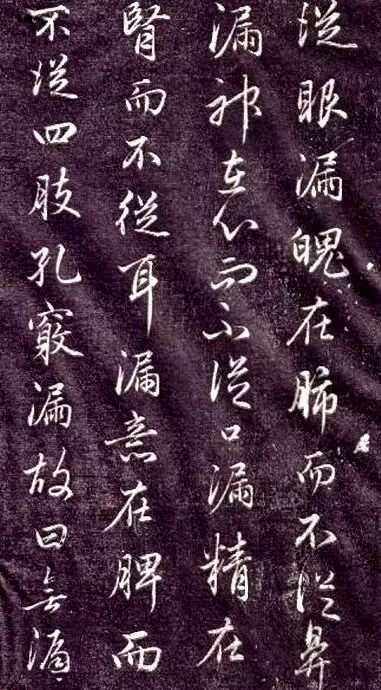 從眼漏魄在肺而不從鼻
漏神在心而不從口漏精在
腎而不從耳漏意在脾而
不從四肢孔竅漏故曰無漏